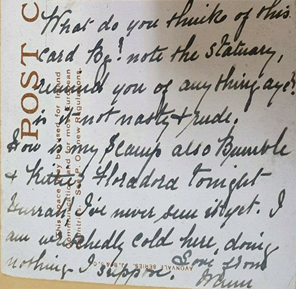 What do you think of this
card Bg! note the Statuary,
remind you of anything
is it not nasty & rude.
How is my Scamp also Bumble
& Kitty? Floradora Tonight
Hurrah I've never seen it yet. I
am wretchedly cold here, doing
nothing I suppose. Love from
POST C